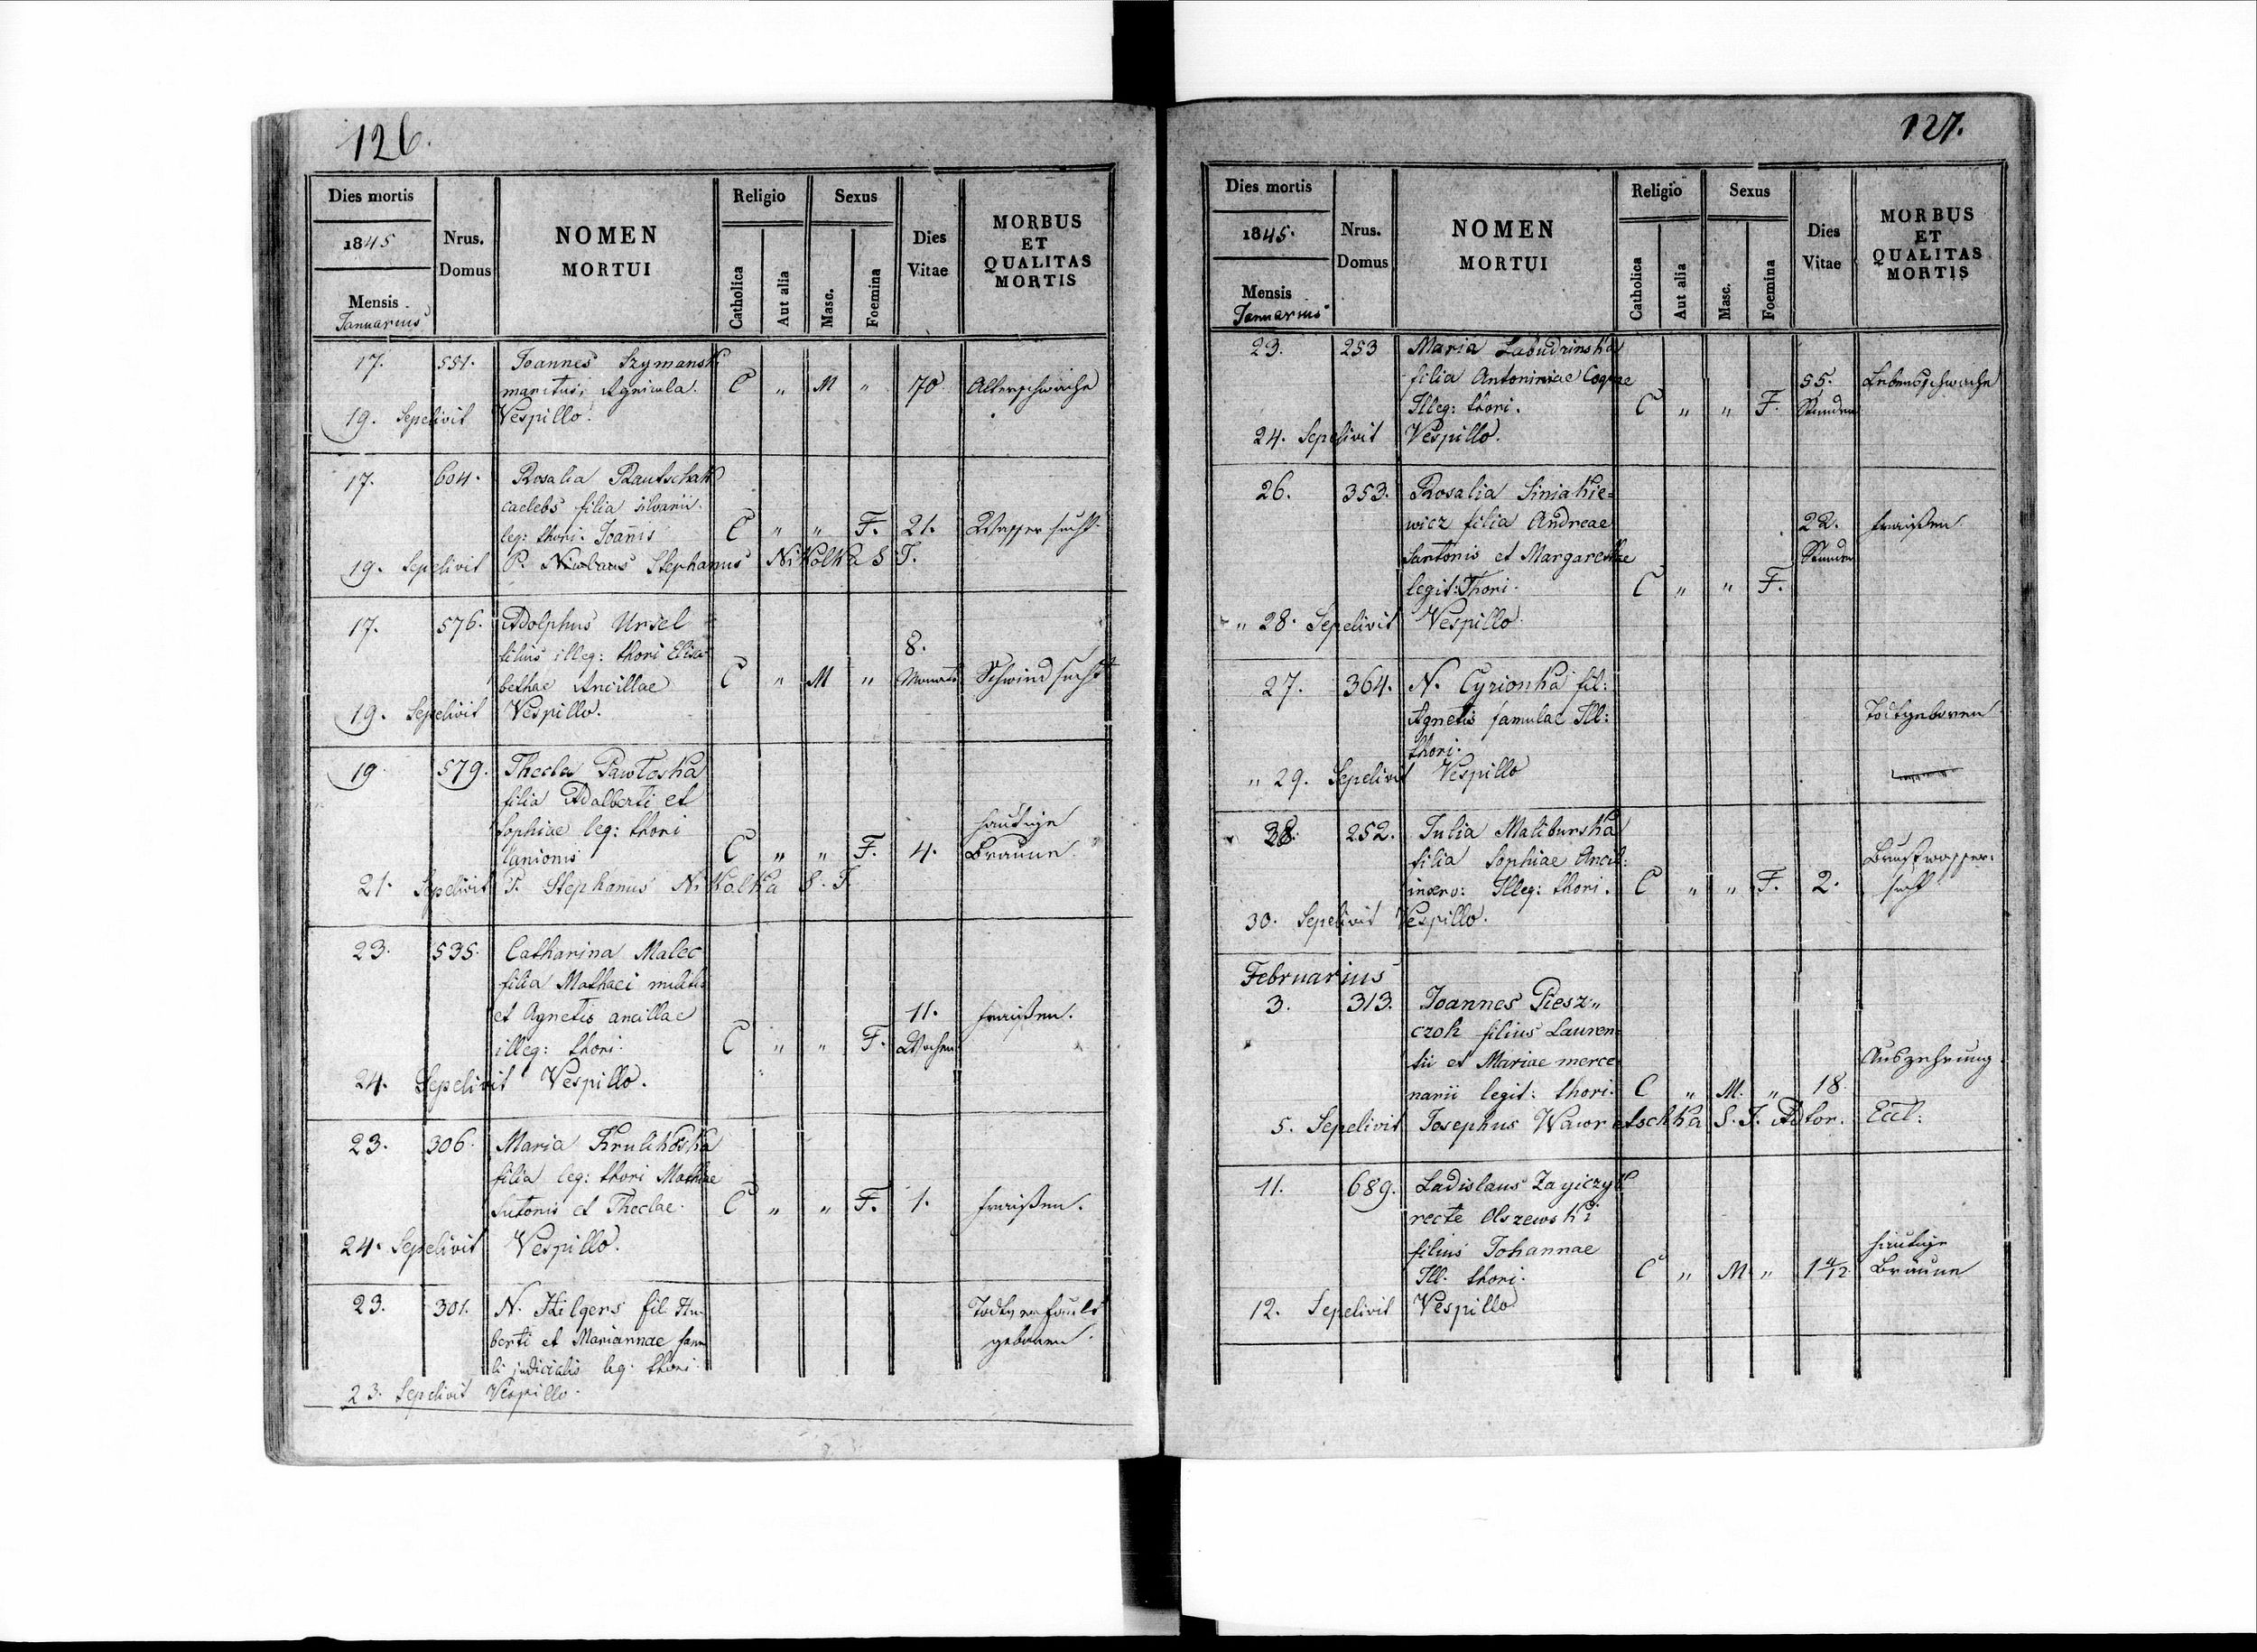 126.
Dies mortis
1845
Mensis
Januarius
Nrus.
Domus
NOMEN
MORTUI
Religio
Catholica
Aut alia
Sexus
Masc.
Foemina
Dies
Vitae
MORBUS
ET
QUALITAS
MORTIS
17. 551. Joannes Szymansk
maritus, Agricola. C " M " 70 Altersschwäche
19. Sepelivit Vespillo.
17. 604. Rosalia Rautschak
caelebs filia silvarii
leg: thori Joanis C " " F. 21. Wassersucht
19. Sepelivit P. Stephanus Nikolka S. J.
17. 576. Adolphus Ursel
filius illeg: thori Elisa- 8.
bethae Ancillae C " M " Monate Schwindsucht
19. Sepelivit Vespillo.
19 579. Thecla Pawloska
filia Adalberti et
Sophiae leg: thori häutige
lanionis C " " F. 4. Bräune
21. Sepelivit P. Stephanus Nikolka S. J.
23. 535. Catharina Malec
filia Mathaei militis
et Agnetis ancillae 11. Fraißen.
illeg: thori. C " " F. Wochen
24. Sepelivit Vespillo.
23. 306. Maria Krulikoska
filia leg: thori Mathiae
Sutoris et Theclae. C " " F. 1. Fraißen.
24. Sepelivit Vespillo.
23. 301. N. Hilgers fil. Hu-
berti et Mariannae famu geboren.
li judicialis leg: thori.
23. Sepelivit Vespillo.
127.
Dies mortis
1845.
Mensis
Januarius
Nrus.
Domus
NOMEN
MORTUI
Religio
Catholica
Aut alia
Sexus
Masc.
Foemina
Dies
Vitae
MORBUS
ET
QUALITAS
MORTIS
23. 253 Maria Labudzinska
filia Antoninae Coquae 55. Lebensschwäche
Illeg: thori. C " " F. Stunden
24. Sepelivit Vespillo.
26. 353. Rosalia Siniakie=
wicz filia Andreae 22. Fraißen.
Sartoris et Margarethae Stunden
legit: Thori. C " " F.
" 28. Sepelivit Vespillo.
27. 364. N. Cyrionka fil:
Agnetis famulae Ill: Todtgeboren
thori.
" 29. Sepelivit Vespillo
28. 252. Julia Maliburska
filia Sophiae Ancil: Brustwasser-
inserv: Illeg: thori. C " " F. 2. sucht
30. Sepelivit Vespillo.
Februarius
3. 313. Joannes Piesz"
czoh filius Lauren=
tii et Mariae merce Auszehrung
narii legit: thori. C " M. " 18.
5. Sepelivit Josephus Wawretschka S. J. Adtor. Eccl:
11. 689. Ladislaus Zayiczyk
recte Olszewski
filius Johannae häutige
Ill. thori. C " M " Bräune
12. Sepelivit Vespillo